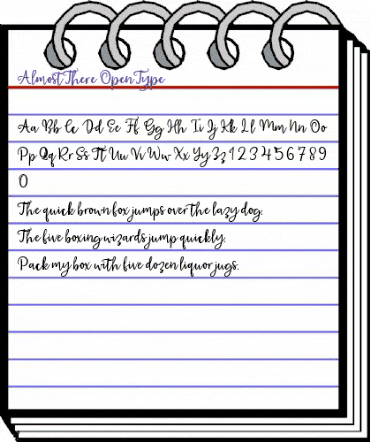 AlmostThere OpenType
Aa Bb Cc Dd Ee Ff Gg Hh Ii Jj Kk Ll Mm Nn Oo
Pp Qq Rr Ss Tt Uu Vv Ww Xx Yy Zz 1 2 3 4 5 6 7 8 9
0
The quick brown fox jumps over the lazy dog.
The five boxing wizards jump quickly.
Pack my box with five dozen liquor jugs.